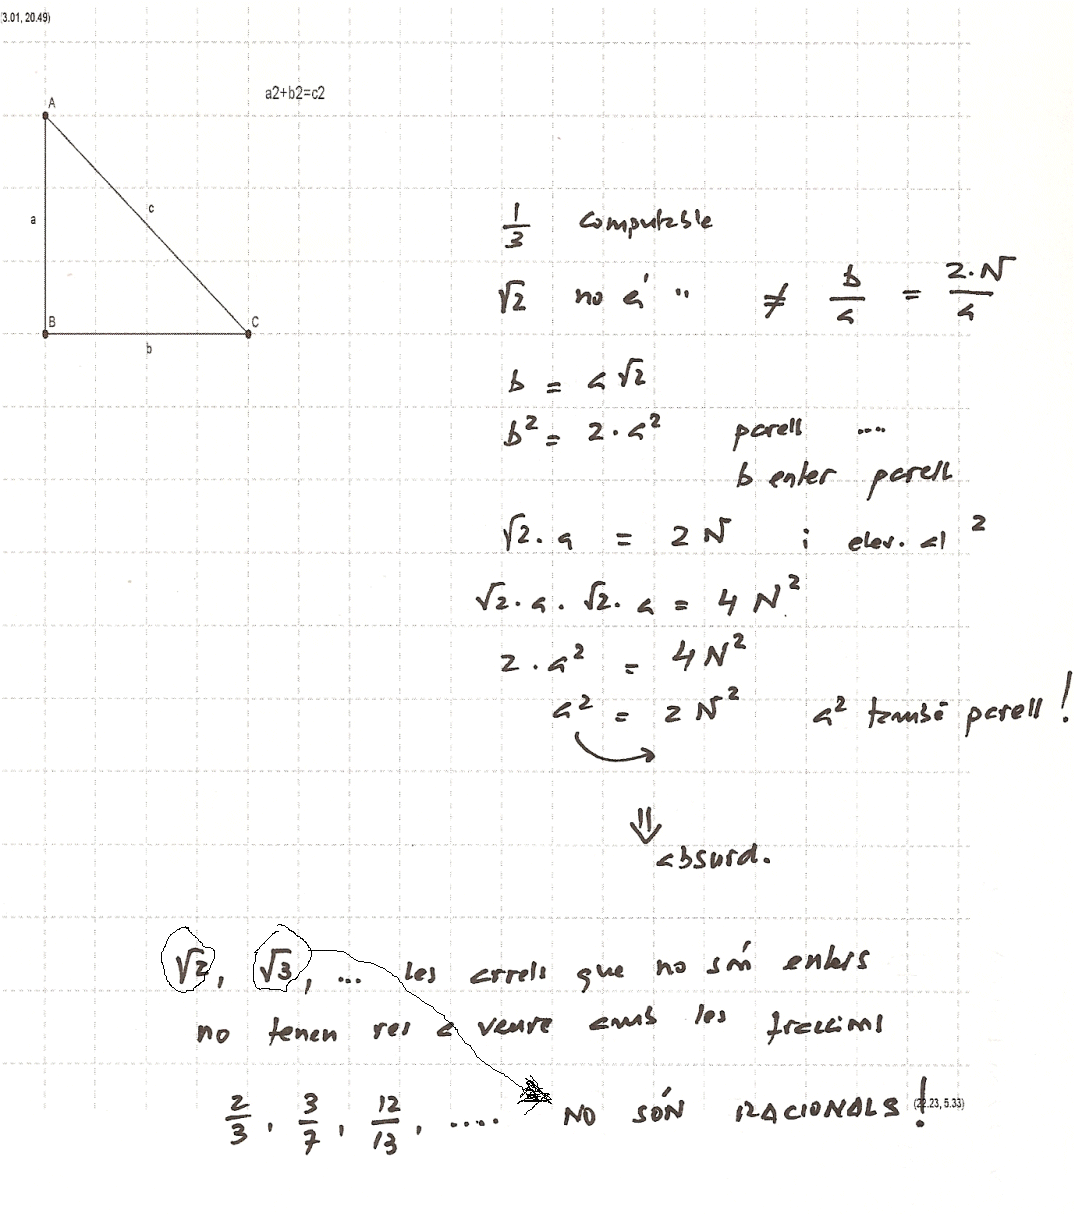 3.01, 20.49)
a2+b2=c2
A
a
c
B
C
b
1/3 computable
√2 no és " ≠ b/a = 2·N/a
b = a√2
b² = 2·a² parell ....
b enter parell
√2·a = 2N i elev. al ²
√2·a·√2·a = 4N²
2·a² = 4N²
a² = 2N² a² també parell!
⇓
absurd.
√2, √3, ... les arrels que no són enters
no tenen res a veure amb les fraccions
2/3, 3/7, 12/13, ..... NO SÓN RACIONALS!
(22.23, 5.33)